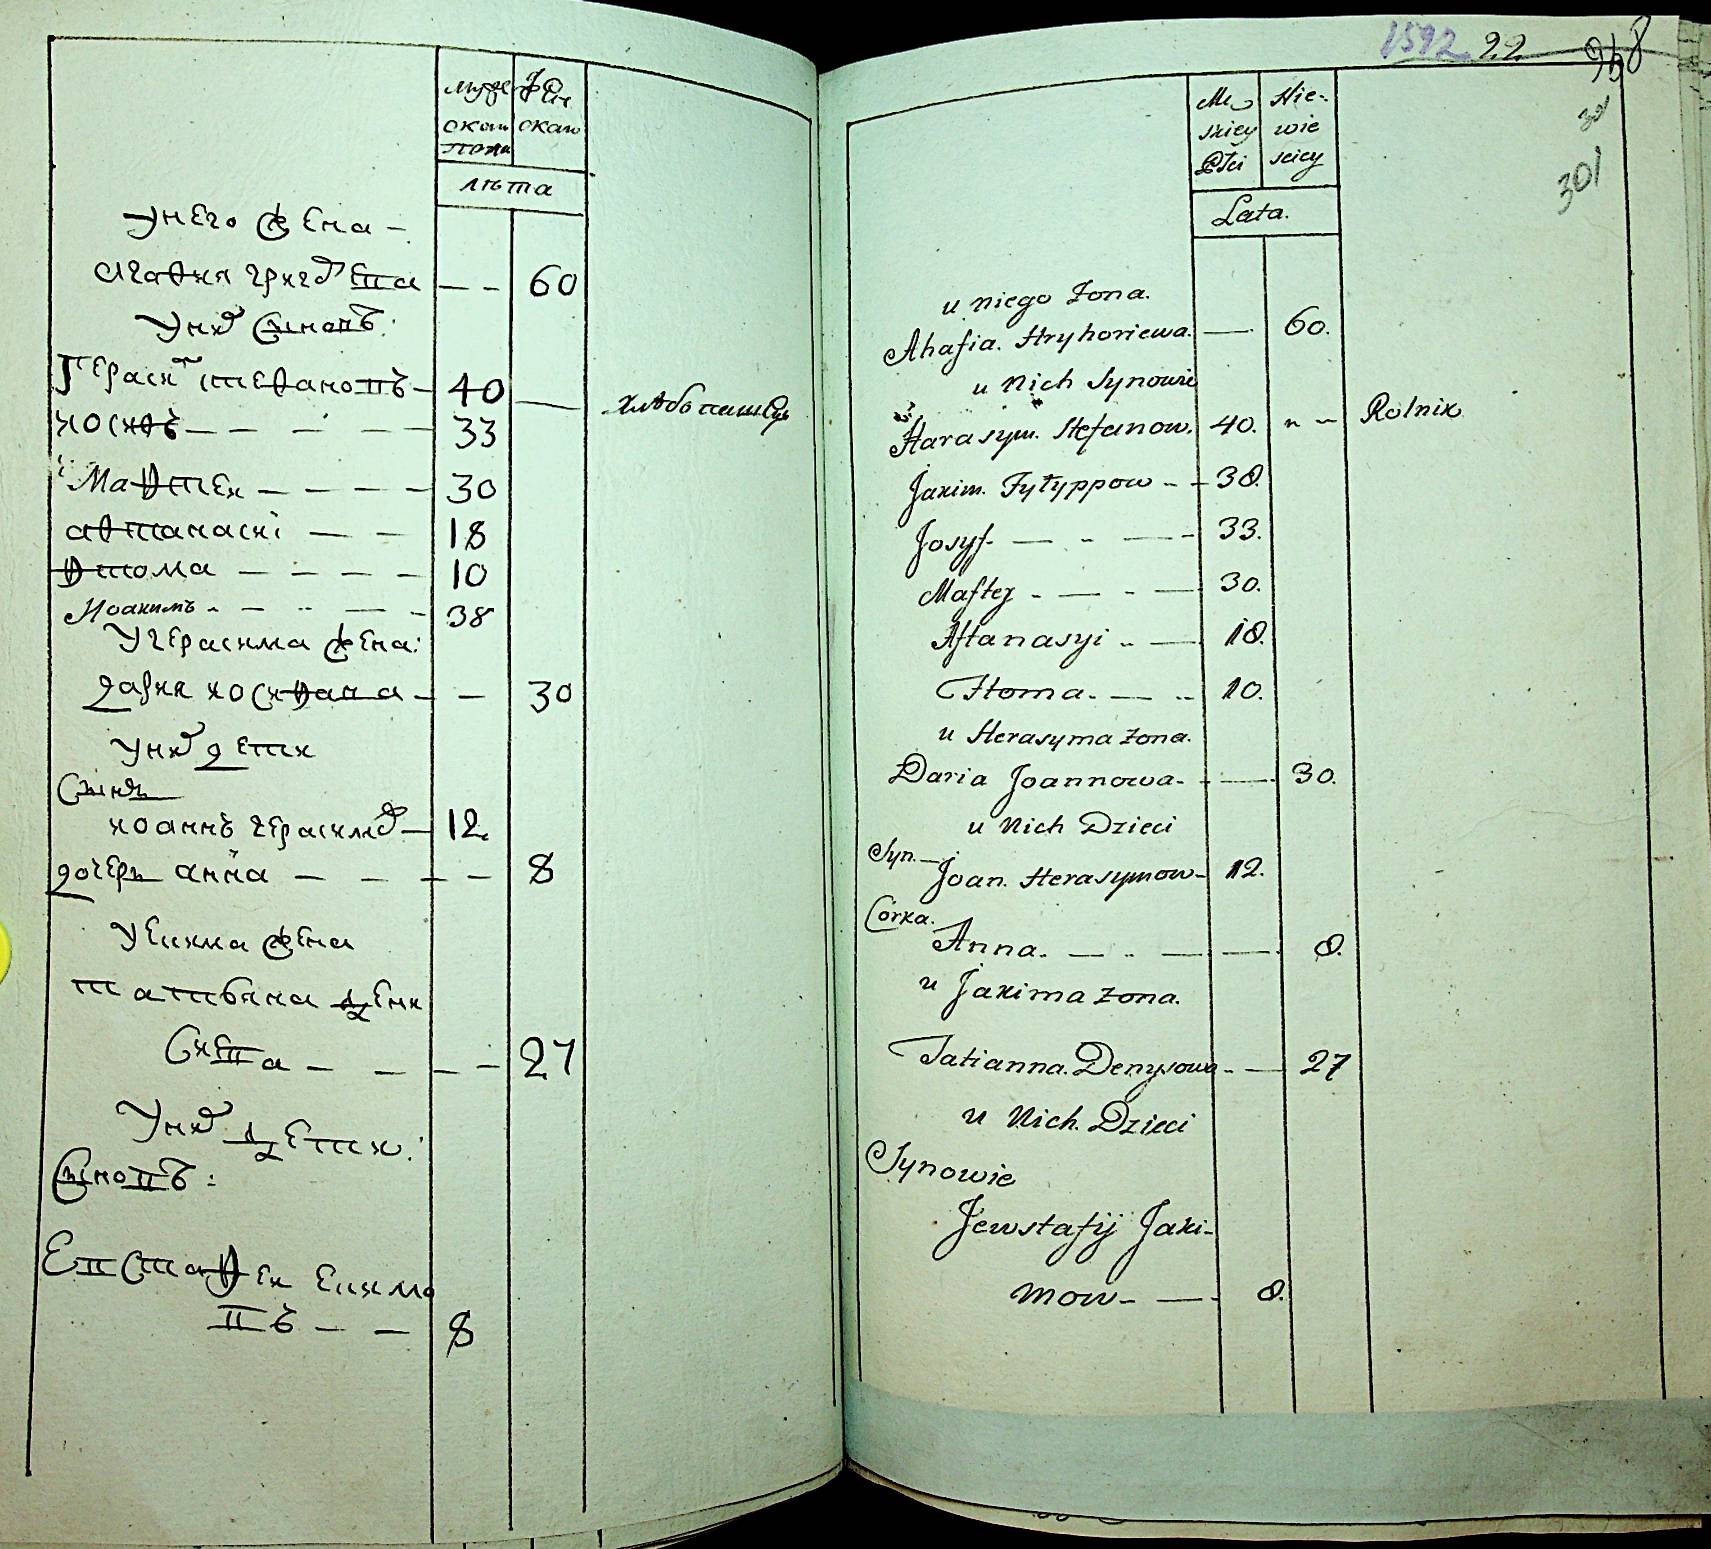 муже
ска
пола
жен
скаг
лѣта
унего жена -
агафия григорева - - 60
уних сыновъ:
Герасим стефановъ - 40 — хлѣбопашецъ
иосифъ - - - - - 33
Мафтей - - - - 30
афтанасиі — — 18
фтома - - - - 10
Иоакимъ - - - - 38
угерасима жена:
дария иосифава - - 30
уних дети
Сынъ
иоаннъ герасимов - 12
дочерь анна - - - - 8
уекима жена
татьяна дени
Сиева - - - - 27
Уних дети:
Сыновъ:
Евстафеи екимо
въ - - 8
1592 22 948
301
301
Mę
skiey
Płci
Nie-
wie
sciey
Lata.
u niego Zona.
Ahafia. Hryhoriewa. — 60.
u Nich Synowie
Harasym. Stefanow. 40. " — Rolnik
Jakim. Fyłyppow - - 38.
Josyf. — - — - 33.
Maftey - — - — 30.
Aftanasyi - — 18.
Ftoma. — - 10.
u Herasyma zona.
Daria Joannowa - — 30.
u Nich Dzieci
Syn. — Joan. Herasymow - 12.
Córka.
Anna. — - — — 8.
u Jakima zona.
Tatianna. Denysowa - — 27
u Nich. Dzieci
Synowie
Jewstafij Jaki-
mow - — - 8.